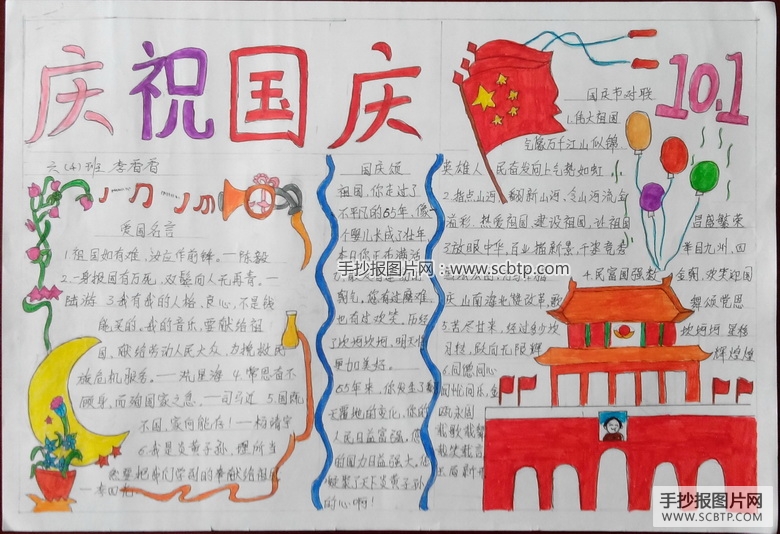 庆祝国庆
10.1
六(4)班 李香香
爱国名言
1.祖国如有难,汝应作前锋。——陈毅
2.一身报国有万死,双鬓向人无再青。——
陆游 3.我有我的人格、良心,不是钱
能买的。我的音乐,要献给祖
国,献给劳动人民大众,为挽救民
族危机服务。——冼星海 4.常思奋不
顾身,而殉国家之急。——司马迁 5.国既
不国,家何能存!——杨靖宇
6.我是炎黄子孙,理所当
然要把我们学到的
国庆颂
祖国,你走过了
不平凡的65年,像
一个婴儿长成了壮年
也有过欢笑。历经
了坎坷坎坷,明天将
更加美好。
65年来,你发生了翻
天覆地的变化,你的
人民日益富强,你
的国力日益强大。你
凝聚了天下炎黄子孙
的心啊!
国庆节对联
1.伟大祖国
气象万千江山似锦
英雄人民奋发向上气势如虹
2.指点山河,翻新山河,令山河流金
溢彩,热爱祖国,建设祖国,让祖国
昌盛繁荣
3.放眼中华,百业描新景,千姿竞秀
举目九州,四
4.民富国强
欢笑迎国
庆 山南海北赞改革
载颂党恩
5.苦尽甘来,经过多少坎
坎坷坷 呈
程,跃向无限辉
辉煌煌
6.同德同心
同忧同乐
手抄报图片网:www.scbtp.com
手抄报图片网
WWW.SCBTP.COM